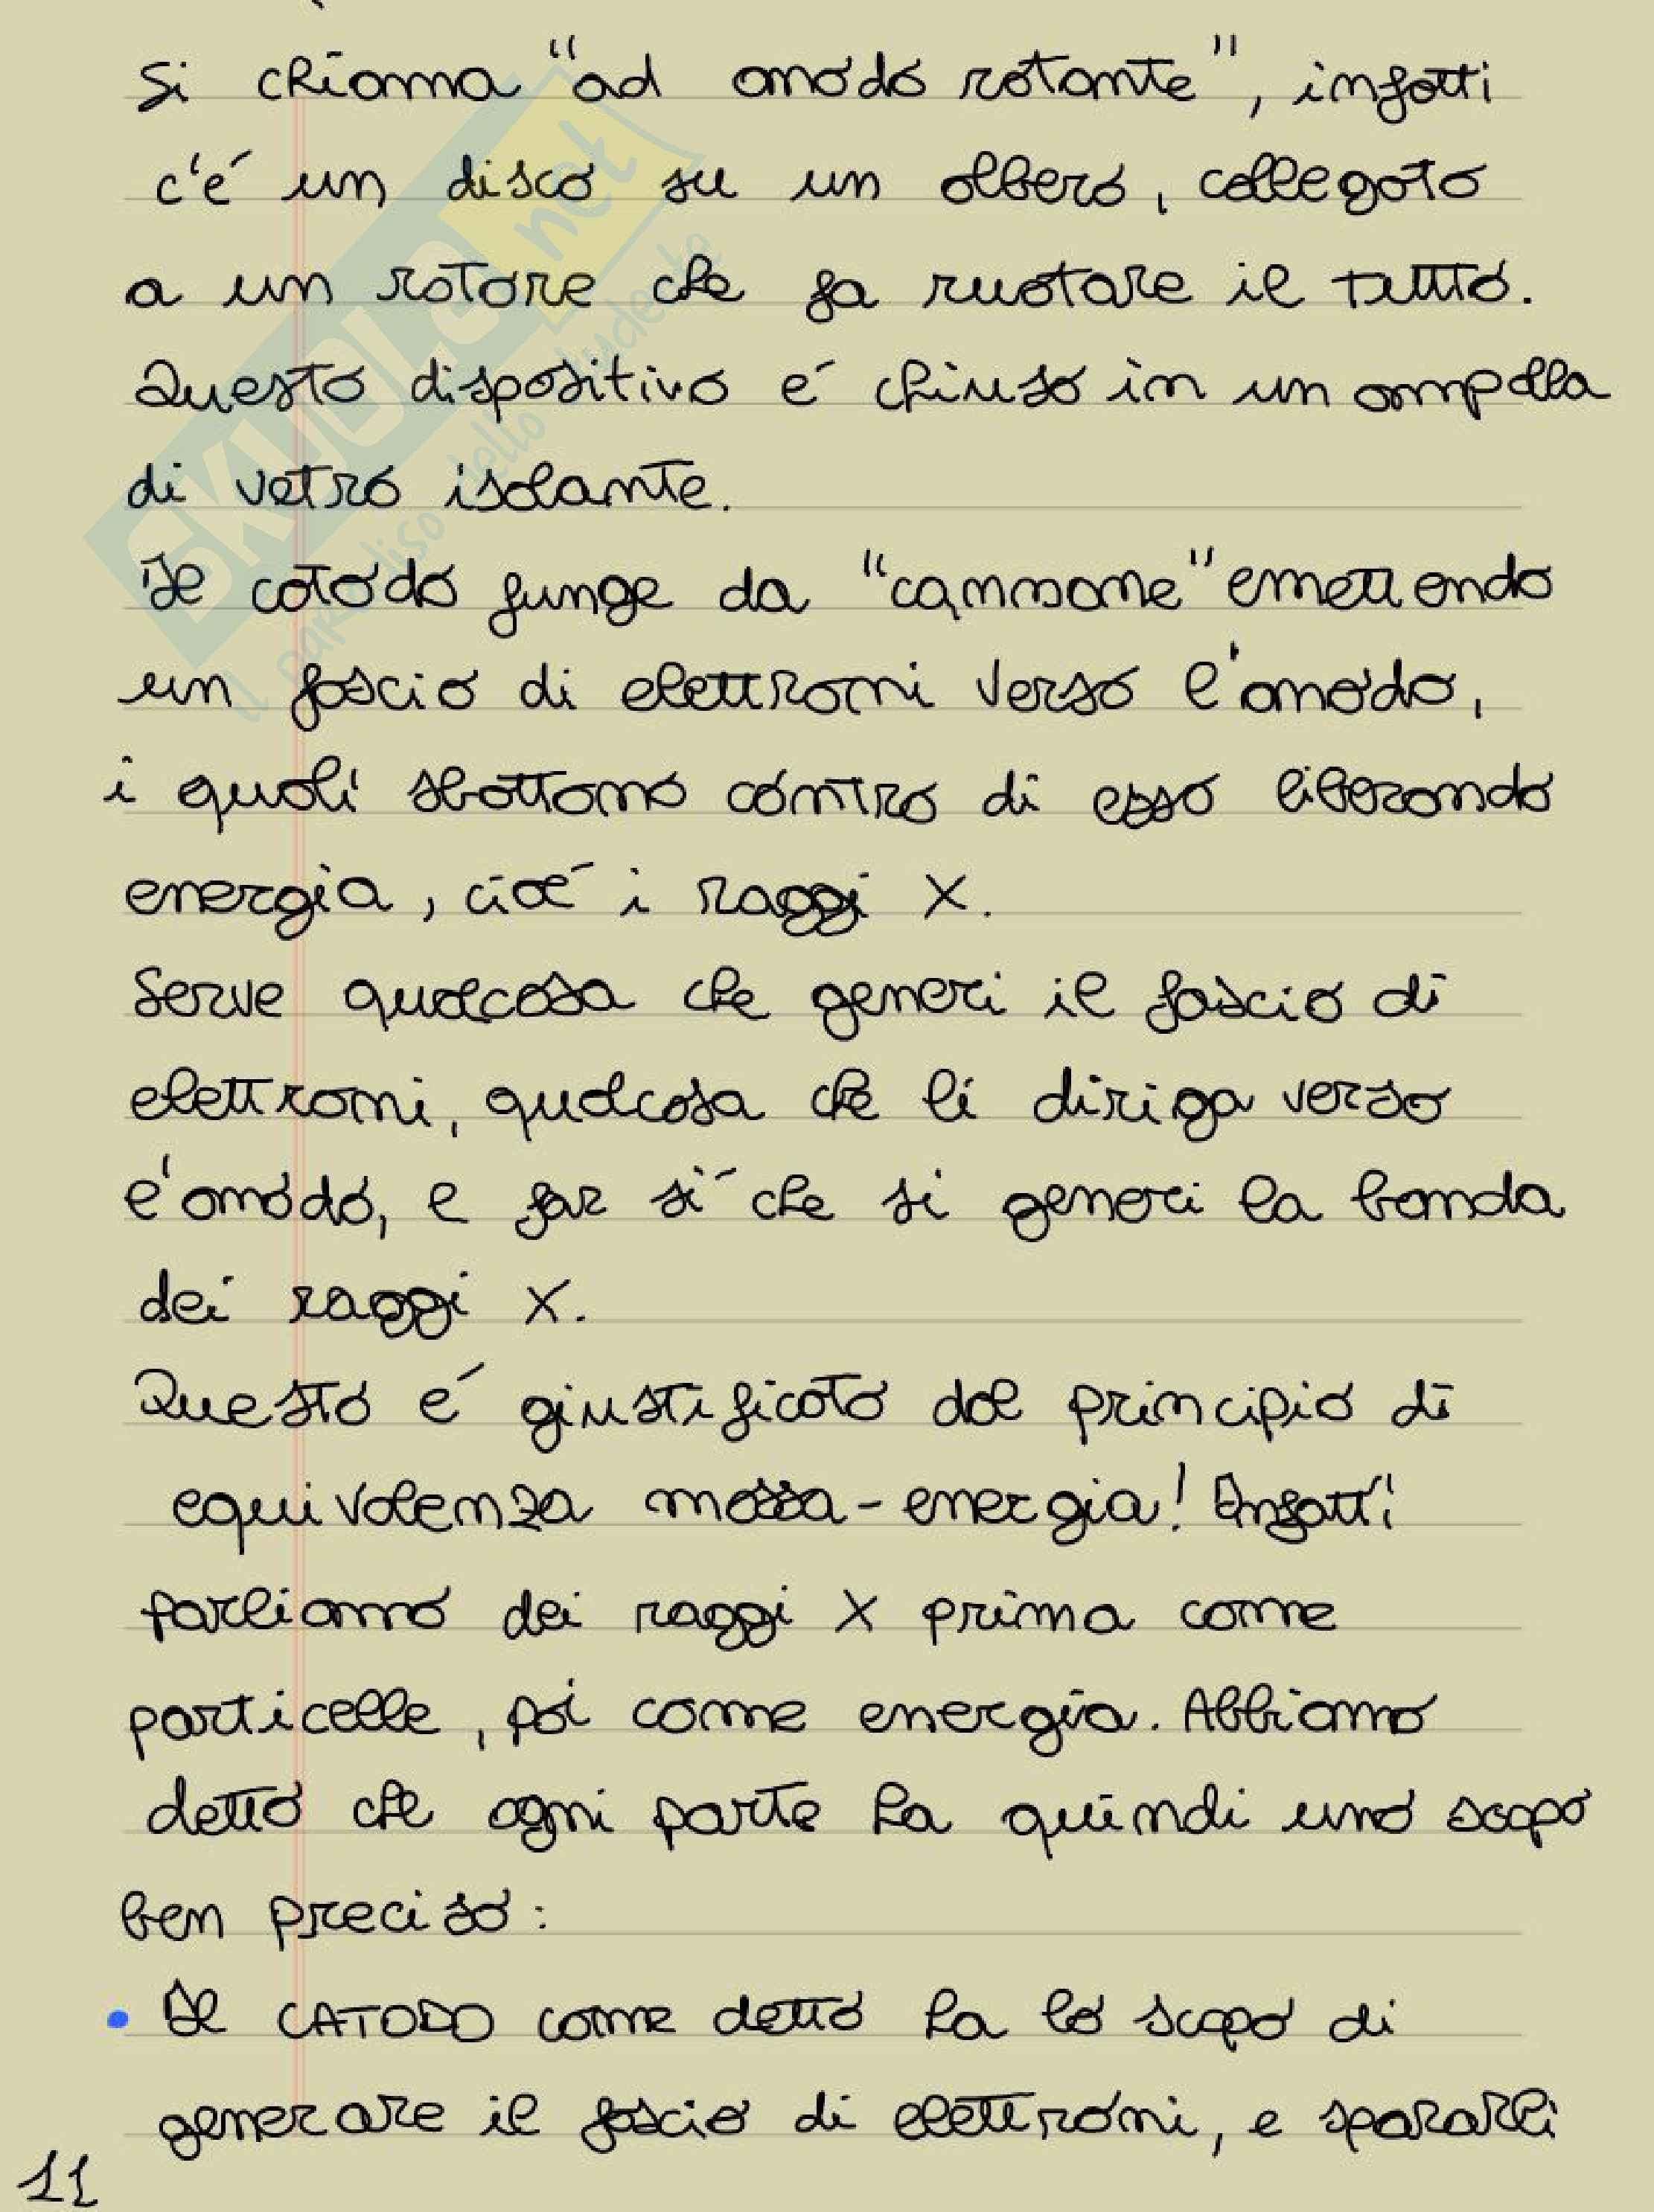 Si chiama "ad anodo rotante", infatti
c'é un disco su un albero, collegato
a un rotore che fa ruotare il tutto.
Questo dispositivo é chiuso in un ampolla
di vetro isolante.
Il catodo funge da "cannone" emettendo
un fascio di elettroni verso l'anodo,
i quali sbattono contro di esso liberando
energia, cioé i raggi X.
Serve qualcosa che generi il fascio di
elettroni, qualcosa che li diriga verso
l'anodo, e far sí che si generi la banda
dei raggi X.
Questo é giustificato dal principio di
equivalenza massa-energia! Infatti
parliamo dei raggi X prima come
particelle, poi come energia. Abbiamo
detto che ogni parte ha quindi uno scopo
ben preciso:
• Il CATODO come detto ha lo scopo di
generare il fascio di elettroni, e spararli
11
SKUOLA.net
il paradiso dello studente